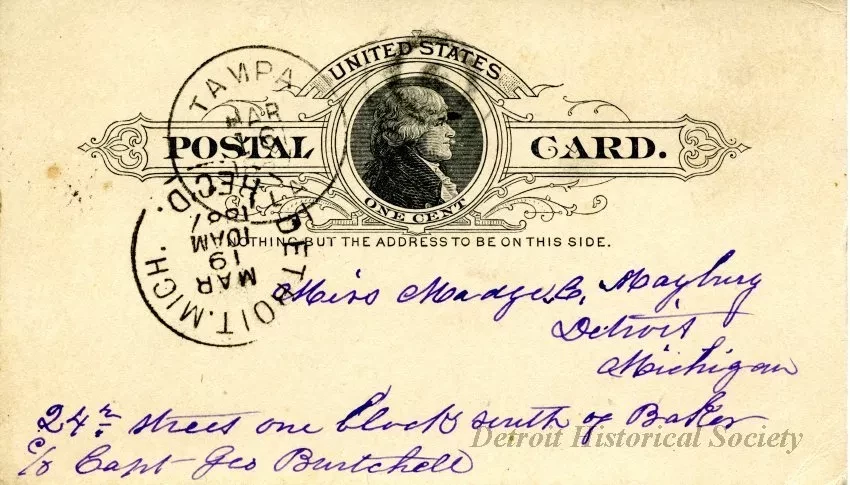 UNITED STATES
POSTAL CARD.
ONE CENT
NOTHING BUT THE ADDRESS TO BE ON THIS SIDE.
TAMPA
MAR
16
DETROIT. MICH.
MAR
19
10AM
1887
REC'D.
Miss Madge C. Maybury
Detroit
Michigan
24th street one block south of Baker
c/o Capt Geo Burtchell
Detroit Historical Society